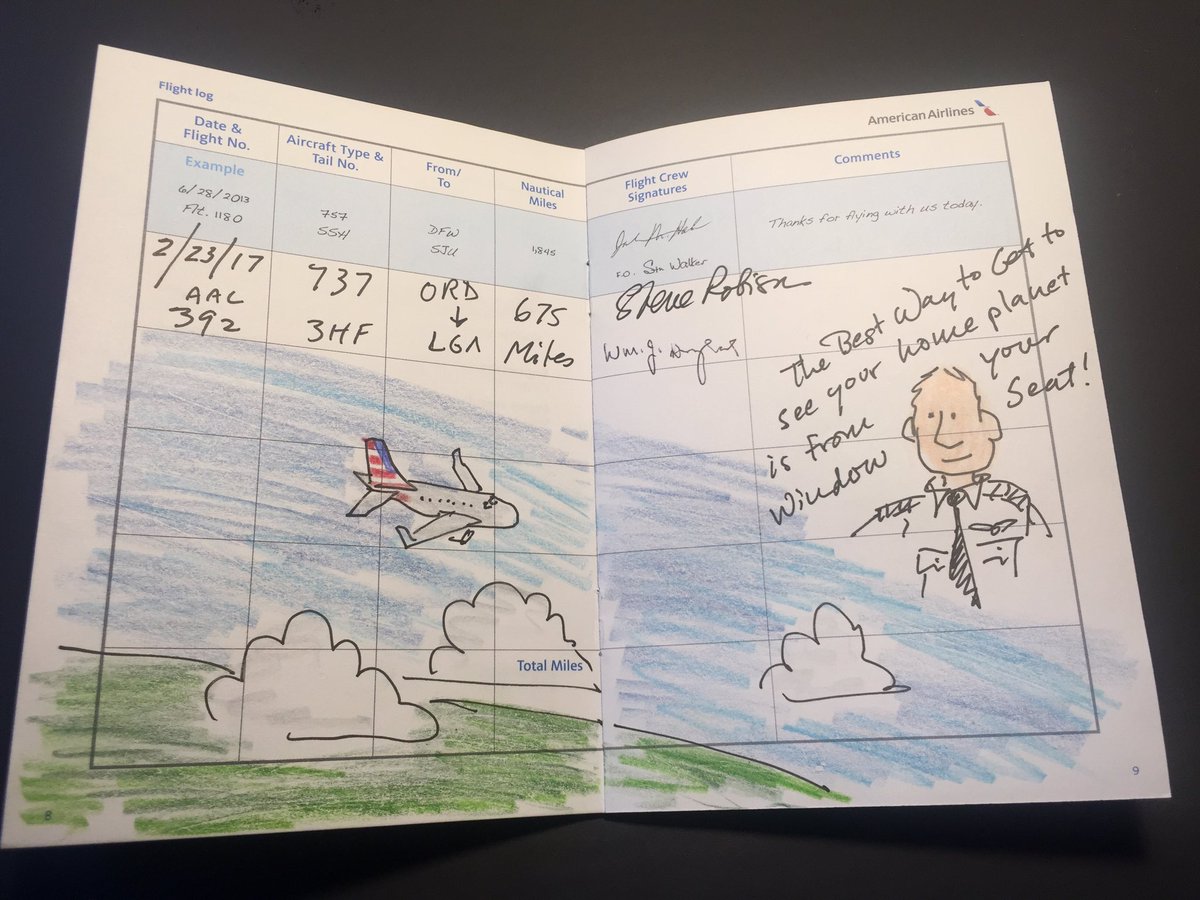 Flight log
American Airlines
Date &
Flight No.
Aircraft Type &
Tail No.
From/
To
Nautical
Miles
Flight Crew
Signatures
Comments
Example
6/28/2013
Flt. 1180
757
5SY
DFW
SJU
1,845
F.O. Stu Walker
Thanks for flying with us today.
2/23/17
AAL
392
737
3HF
ORD
↓
LGA
675
Miles
Steve Robison
Wm. J.
The Best Way to Get to
see your home planet
is from your
Window Seat!
Total Miles
8
9